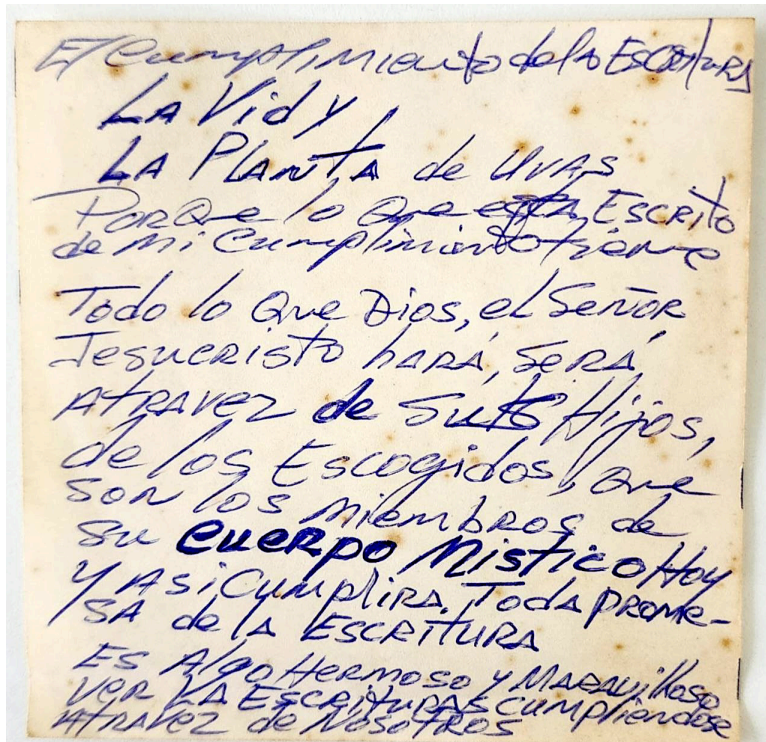 El Cumplimiento de la Escritura
La Vid y
La Planta de Uvas
Porque lo que está Escrito
de mi Cumplimiento tiene
Todo lo que Dios, el Señor
Jesucristo hará, será,
atravez de Sus Hijos,
de los Escogidos, que
son los miembros de
su Cuerpo Mistico Hoy
y asi Cumplira Toda prome-
sa de la Escritura
Es Algo Hermoso y Maravilloso
ver La Escrituras Cumpliendose
Atravez de Nosotros